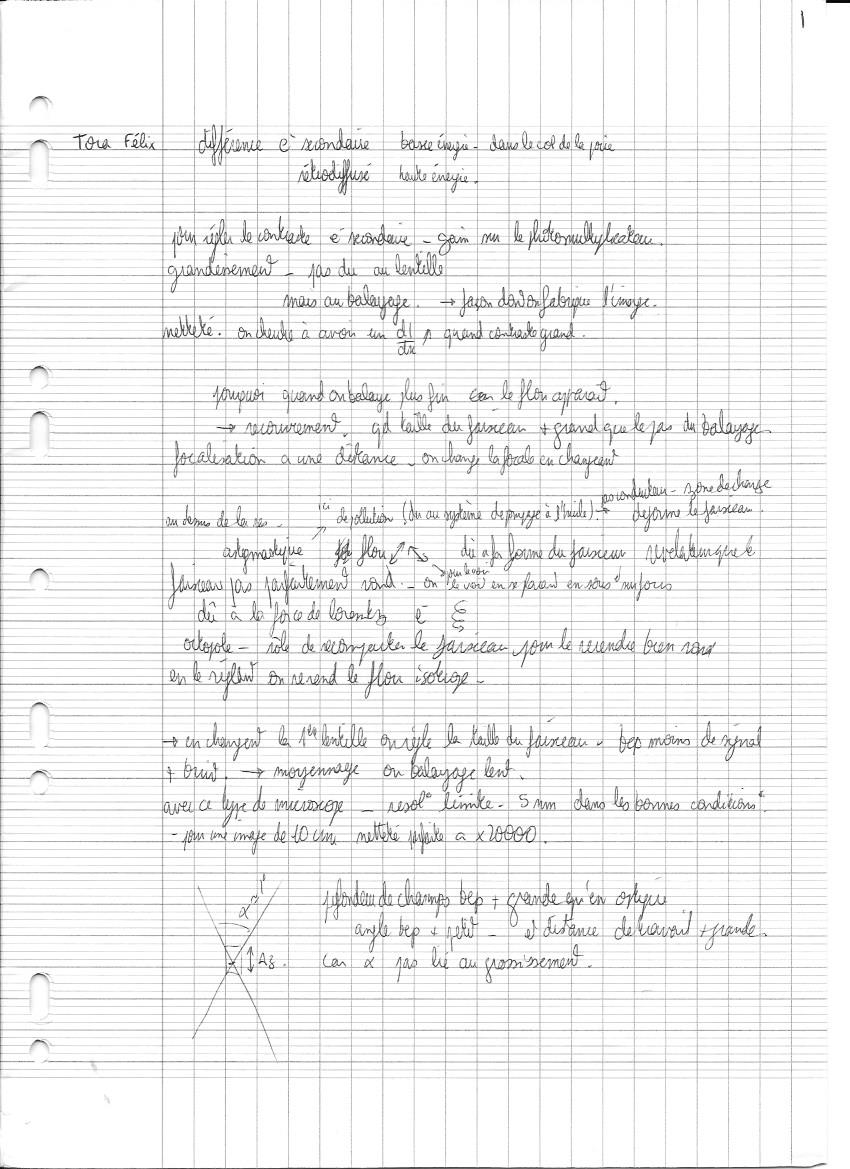 1
Tora Félix différence e⁻ secondaire basse énergie - dans le col de la poire
rétrodiffusé haute énergie.
pour régler le contraste e⁻ secondaire - gain sur le photomultiplicateur.
grandissement - pas du au lentille
mais au balayage. → façon dont on fabrique l'image.
netteté. on cherche à avoir un dI/dx ↗ quand contraste grand.
pourquoi quand on balaye plus fin le flou apparait.
→ recouvrement. qd taille du faisceau + grand que le pas du balayage
focalisation a une distance - on change la focale en changeant
pas conducteur - zone de charge
au dessus de la - ici de pollution (du au système de pompage à l'huile). → déforme le faisceau.
astigmatique flou ↗ ↘ dû a la forme du faisceau que le
pour le voir
faisceau pas parfaitement rond. - on le voit en se plaçant en sous sur focus
dû à la force de lorentz e⁻
octopole - rôle de recompacter le faisceau pour le rerendre bien rond
en le réglant on rerend le flou isotrope -
→ en changent la 1ère lentille on règle la taille du faisceau - bcp moins de signal
+ bruit. → moyennage ou balayage lent.
avec ce type de microscope - resolᵒ limite - 5 nm dans les bonnes conditions.
- pour une image de 10 cm netteté parfaite a x20000.
α ~ 1°
Δz.
profondeur de champs bcp + grande qu'en optique
angle bcp + petit - et distance de travail + grande.
car α pas lié au grossissement.